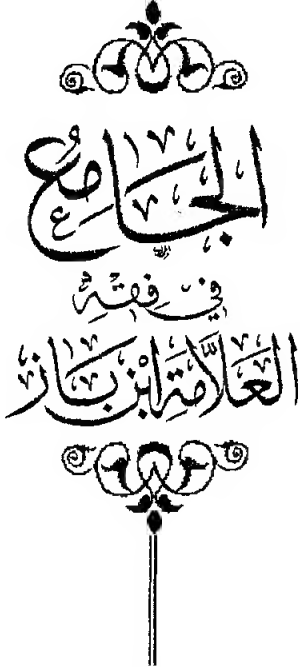 الجَامِعُ
في فِقْهِ
العَلاَّمَةِ ابْنِ بَاز